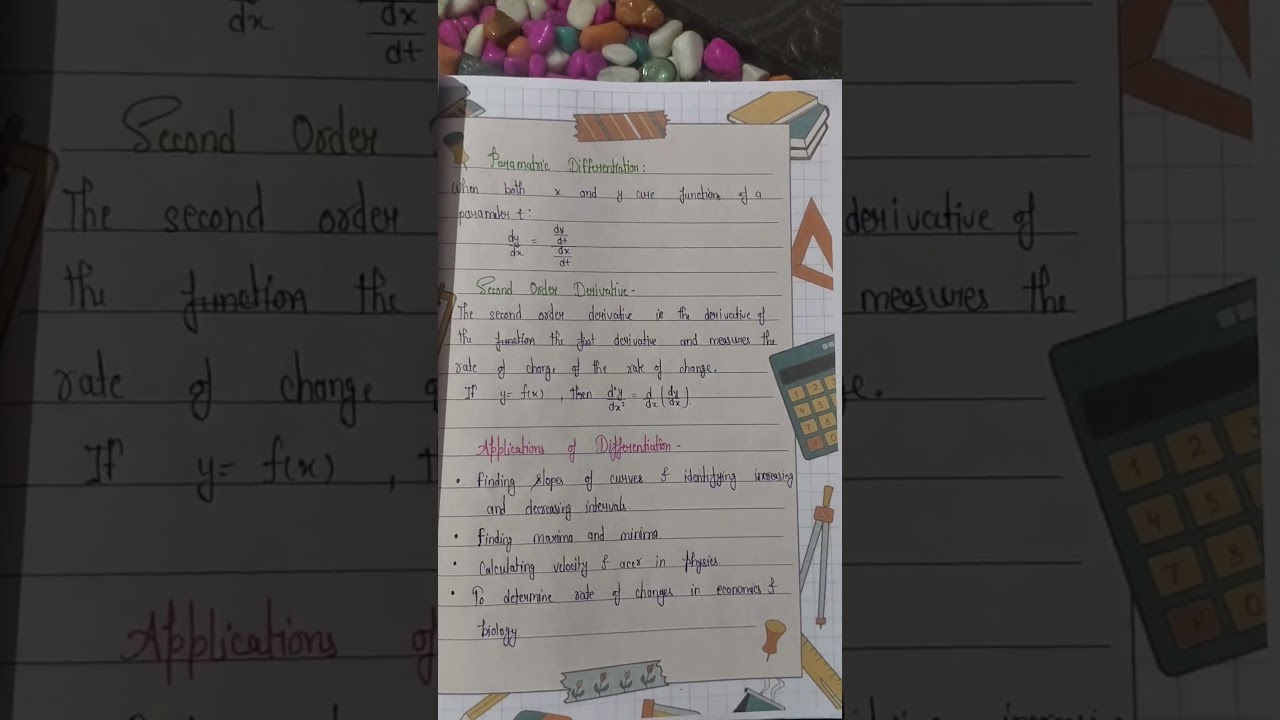 Parametric Differentiation:
When both x and y are functions of a
parameter t:
dy/dx = (dy/dt)/(dx/dt)
Second Order Derivative-
The second order derivative is the derivative of
the function the first derivative and measures the
rate of change of the rate of change.
If y= f(x) , then d²y/dx² = d/dx (dy/dx).
Applications of Differentiation-
• Finding slopes of curves & identifying increasing
and decreasing intervals
• Finding maxima and minima
• Calculating velocity & accr in physics.
• To determine rate of changes in economics &
biology